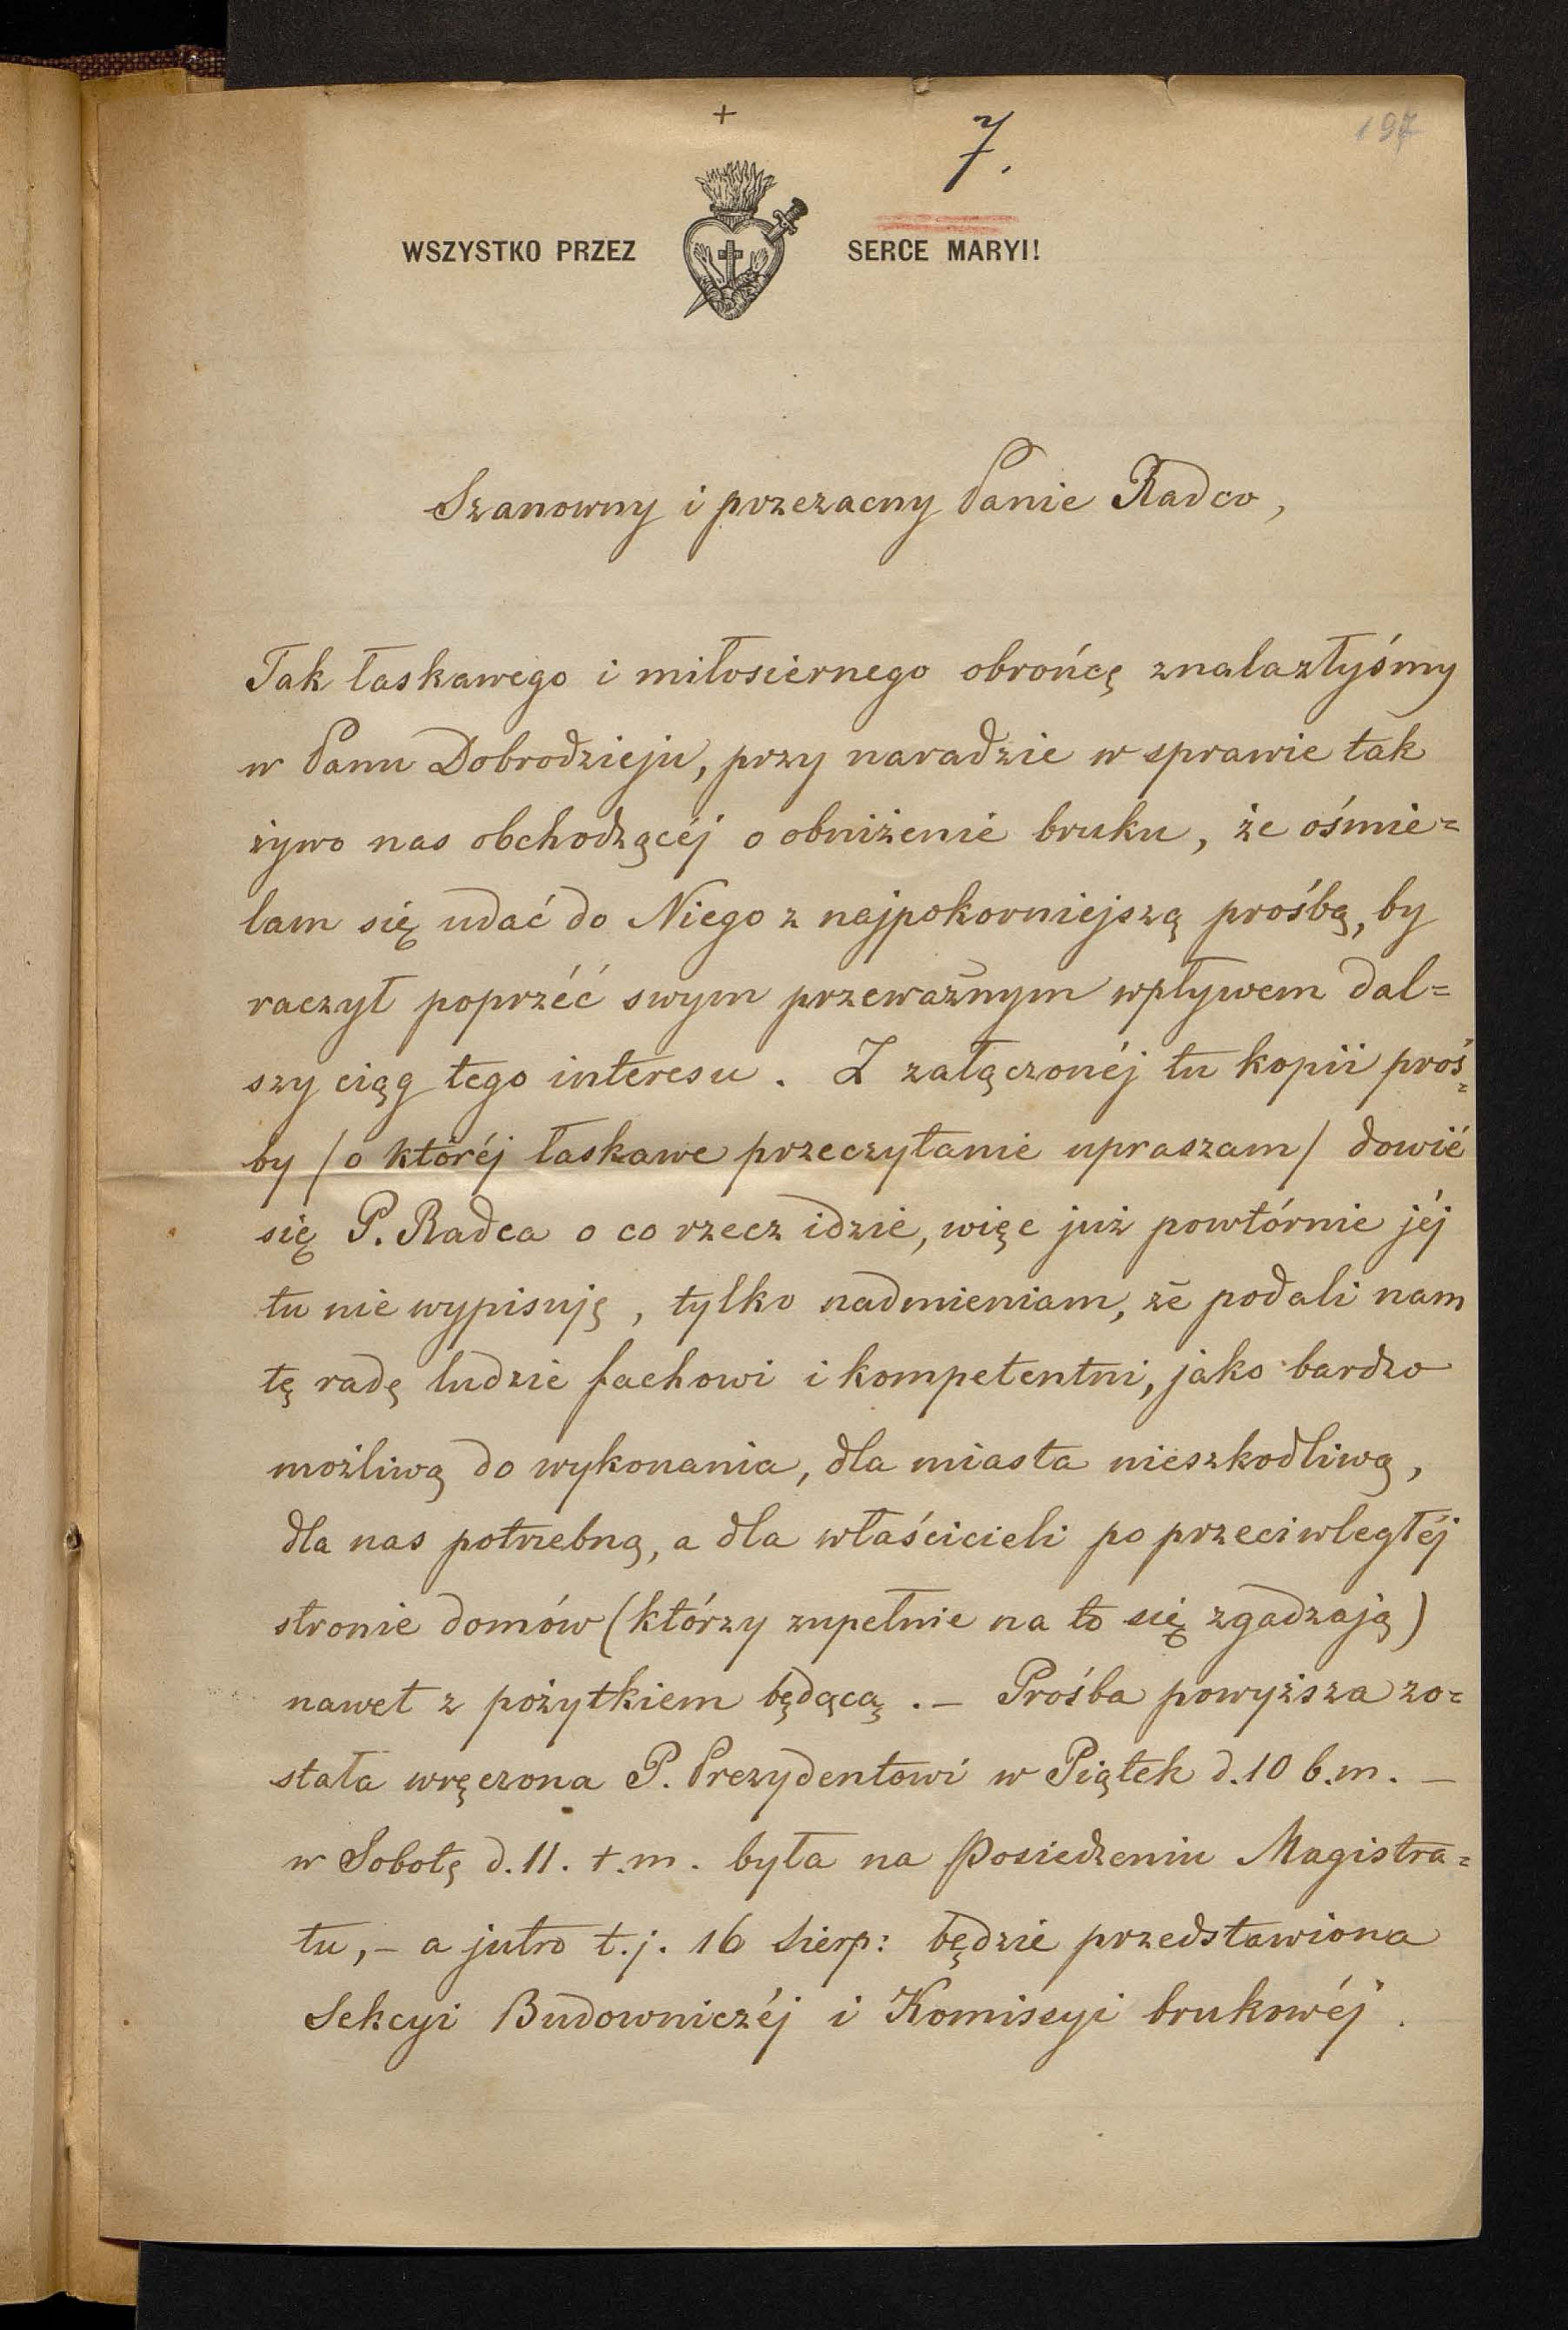 +
7.
197
WSZYSTKO PRZEZ SERCE MARYI!
Szanowny i przezacny Panie Radco,
Tak łaskawego i miłosiernego obrońcę znalazłyśmy
w Panu Dobrodzieju, przy naradzie w sprawie tak
żywo nas obchodzącéj o obniżenie bruku, że ośmie=
lam się udać do Niego z najpokorniejszą prośbą, by
raczył poprzéć swym przeważnym wpływem dal=
szy ciąg tego interesu. Z załączonéj tu kopii proś=
by /o któréj łaskawe przeczytanie upraszam/ dowié
się P. Radca o co rzecz idzie, więc już powtórnie jéj
tu nie wypisuję, tylko nadmieniam, że podali nam
tę radę ludzie fachowi i kompetentni, jako bardzo
możliwą do wykonania, dla miasta nieszkodliwą,
dla nas potrzebną, a dla właścicieli po przeciwległéj
stronie domów (którzy zupełnie na to się zgadzają)
nawet z pożytkiem będącą. – Prośba powyższa zo=
stała wręczona P. Prezydentowi w Piątek d. 10 b.m. –
w Sobotę d. 11. t.m. była na Posiedzeniu Magistra=
tu, – a jutro t.j. 16 Sierp: będzie przedstawiona
Sekcyi Budowniczéj i Komissyi brukowéj.